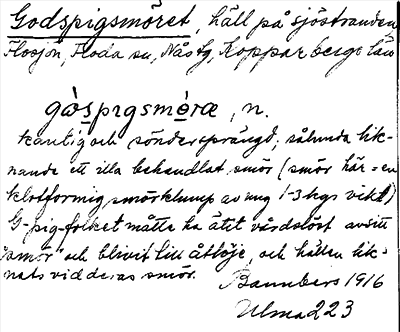 Godspigsmöret, häll på sjöstranden,
Flosjön, Floda sn, Nås tg, Kopparbergs län
gὼspɪgsmèræ, n.
kantig och söndersprängd, sålunda lik-
nande ett illa behandlat smör (smör här = en
klotformig smörklump av ung 1-3 kgs vikt)
G-pig-folket måtte ha ätit vårdslöst av sitt
"smör" och blivit till åtlöje, och hällen lik-
nats vid deras smör. Bannbers 1916
Ulma 223